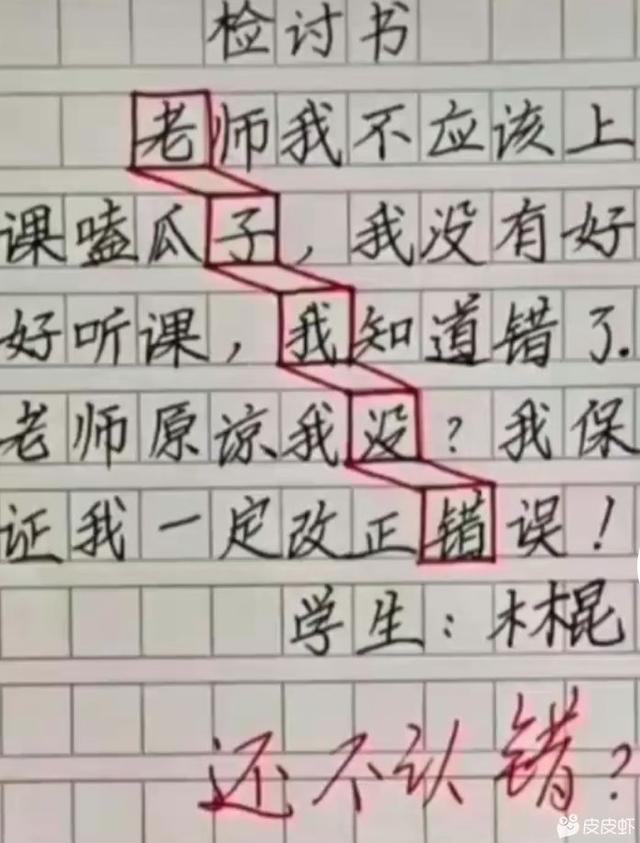 检讨书
老师我不应该上
课嗑瓜子，我没有好
好听课，我知道错了.
老师原谅我没？我保
证我一定改正错误！
学生：林棍
还不认错？
皮皮虾